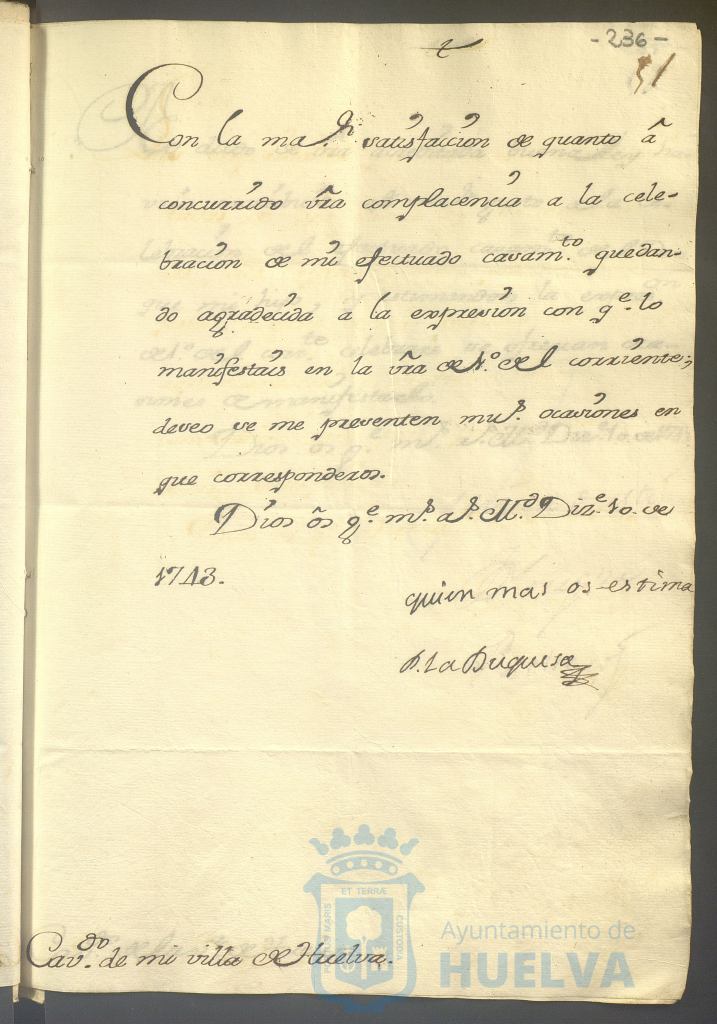 - 236 -
51
Con la ma.or satisfaccion de quanto â
concurrido vra complacencia a la cele-
bracion de mi efectuado casam.to quedan-
do agradecida a la expresion con q.e lo
manifestais en la vra de 1.º del corriente;
deseo se me presenten mu.s ocasiones en
que corresponderos.
Dios ôs g.e m.s a.s M.d Diz.e 10. de
1743.
quien mas os estima
La Duquesa
Cav.do de mi villa de Huelva.
ET TERRÆ
PORTUS MARIS
CUSTODIA
Ayuntamiento de
HUELVA